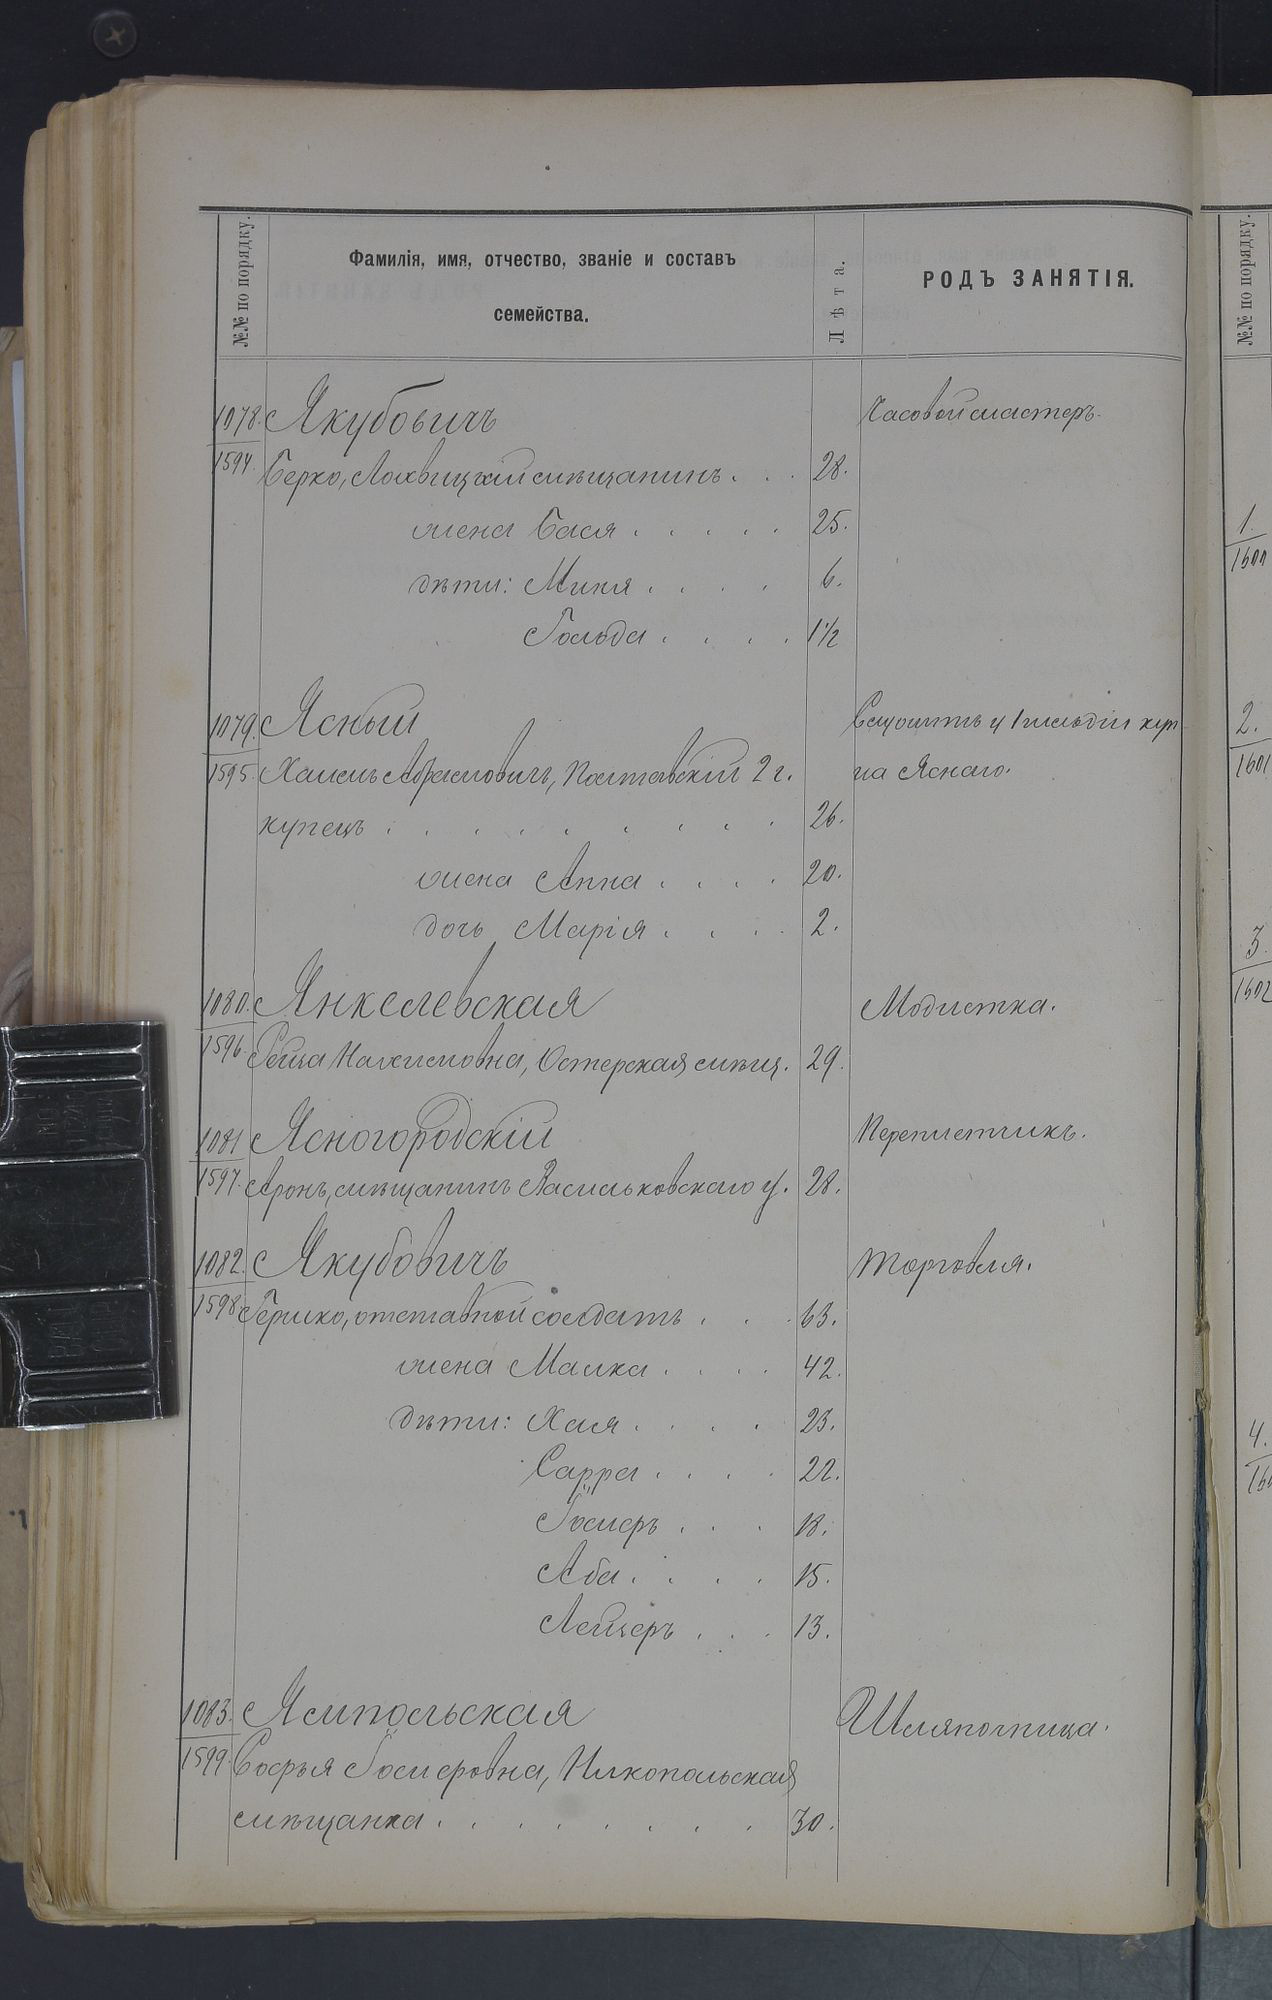 №№ по порядку.
Фамилія, имя, отчество, званіе и составъ
семейства.
Лѣта.
РОДЪ ЗАНЯТІЯ.
№№ по порядку.
1078. Якубовичъ Часовой мастеръ.
1594. Берко, Лохвицкій мѣщанинъ . . . 28.
жена Бася . . . . . 25.
дѣти: Миня . . . . 6.
Гольда . . . . 1½
1079. Ясный Служитъ у 1 гильдіи куп
1595. Хаимъ Абрамовичъ, Полтавскій 2 г. ца Яснаго.
купецъ . . . . . . . . . 26.
жена Анна . . . . 20.
дочь Марія . . . . 2.
1080. Янкелевская Модистка.
1596. Рейза Нахимовна, Остерская мѣщ. 29.
1081 Ясногородскій Переплетчикъ.
1597. Аронъ, мѣщанинъ Васильковскаго у. 28.
1082. Якубовичъ Торговля.
1598. Гершко, отставной солдатъ . . . 63.
жена Малка . . . . 42.
дѣти: Хая . . . . 23.
Сарра . . . . 22.
Іосифъ . . . 18.
Аба . . . . 15.
Лейзеръ . . . 13.
1083. Ямпольская Шляпочница.
1599. Софья Іосифовна, Никопольская
мѣщанка . . . . . . . . 30.
1.
1600
2.
1601
3.
1602
4.